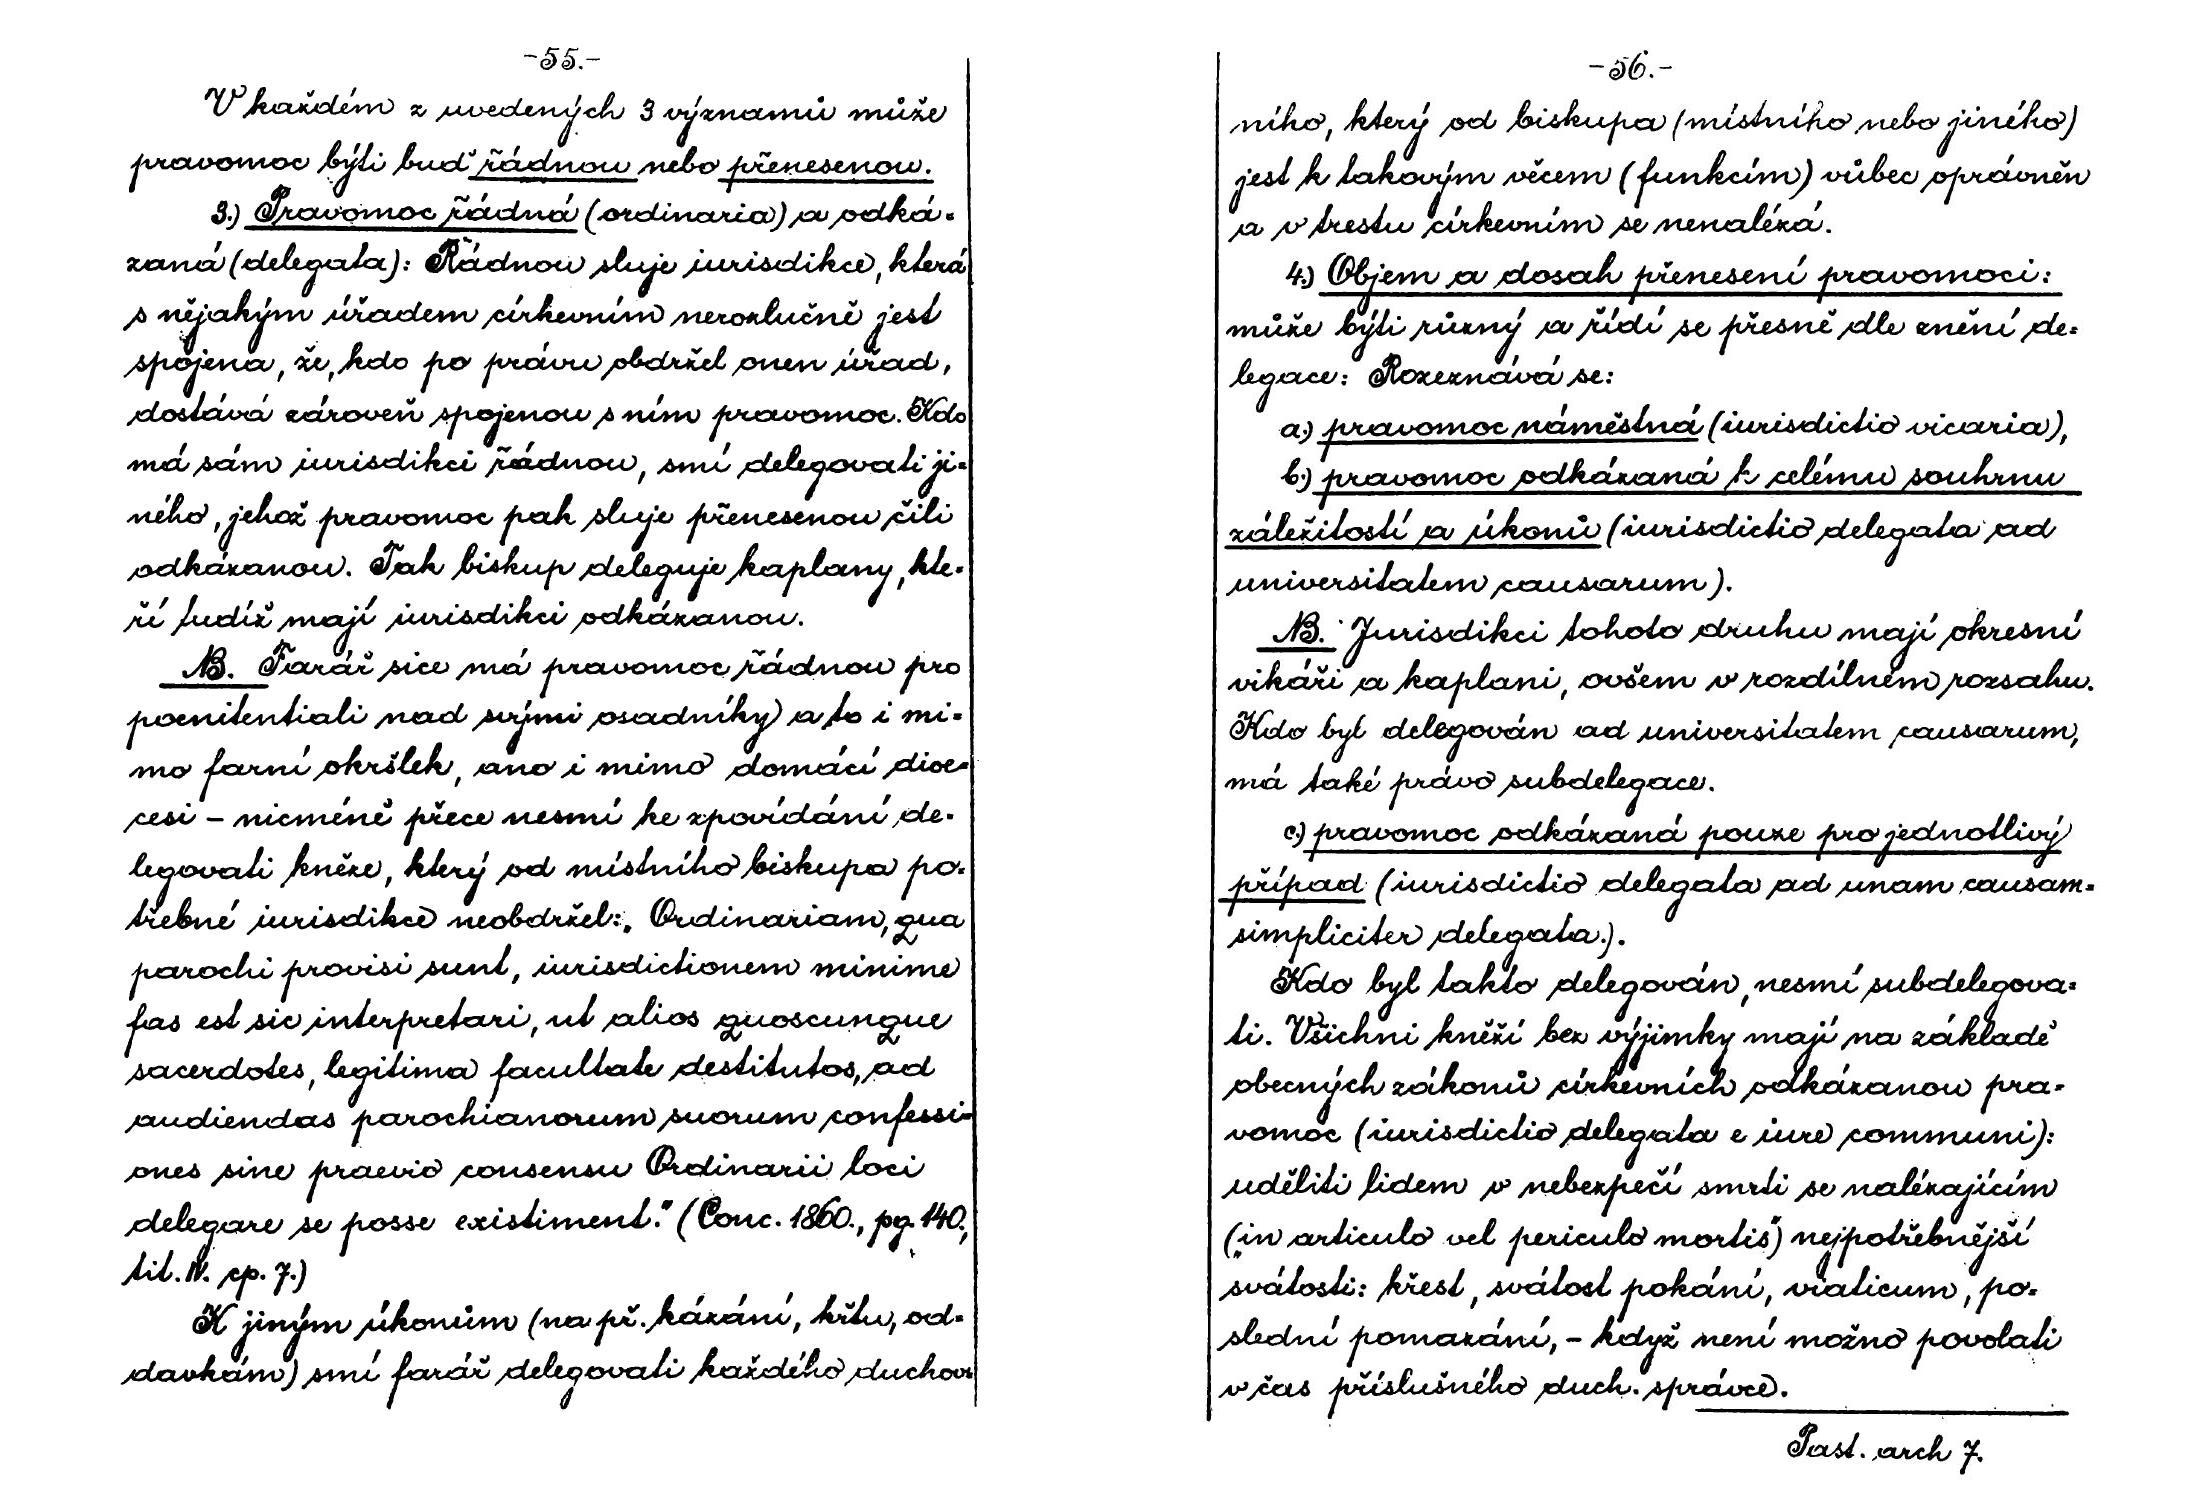 -55.-
V každém z uvedených 3 významů může
pravomoc býti buď řádnou nebo přenesenou.
3.) Pravomoc řádná (ordinaria) a odká=
zaná (delegata): Řádnou sluje iurisdikce, která
s nějakým úřadem církevním nerozlučně jest
spojena, že, kdo po právu obdržel onen úřad,
dostává zároveň spojenou s ním pravomoc. Kdo
má sám iurisdikci řádnou, smí delegovati ji=
ného, jehož pravomoc pak sluje přenesenou čili
odkázanou. Tak biskup deleguje kaplany, kte=
ří tudíž mají iurisdikci odkázanou.
NB. Farář sice má pravomoc řádnou pro
poenitentiali nad svými osadníky) a to i mi=
mo farní okršlek, ano i mimo domácí dioe=
cesi – nicméně přece nesmí ke zpovídání de=
legovati kněze, který od místního biskupa po=
třebné iurisdikce neobdržel: „Ordinariam, qua
parochi provisi sunt, iurisdictionem minime
fas est sic interpretari, ut alios quoscunque
sacerdotes, legitima facultate destitutos, ad
audiendas parochianorum suorum confessi=
ones sine praevio consensu Ordinarii loci
delegare se posse existiment." (Conc. 1860., pg. 140.,
tit. IV. cp. 7.)
K jiným úkonům (na př. kázání, křtu, od=
davkám) smí farář delegovati každého duchov=
-56.-
ního, který od biskupa (místního nebo jiného)
jest k takovým věcem (funkcím) vůbec oprávněn
a v trestu církevním se nenalézá.
4.) Objem a dosah přenesení pravomoci:
může býti různý a řídí se přesně dle znění de=
legace: Rozeznává se:
a.) pravomoc náměstná (iurisdictio vicaria),
b.) pravomoc odkázaná k celému souhrnu
záležitostí a úkonů (iurisdictio delegata ad
universitatem causarum).
NB. Jurisdikci tohoto druhu mají okresní
vikáři a kaplani, ovšem v rozdílném rozsahu.
Kdo byl delegován ad universitatem causarum,
má také právo subdelegace.
c.) pravomoc odkázaná pouze pro jednotlivý
případ (iurisdictio delegata ad unam causam=
simpliciter delegata.).
Kdo byl takto delegován, nesmí subdelegova=
ti. Všichni kněží bez výjimky mají na základě
obecných zákonů církevních odkázanou pra=
vomoc (iurisdictio delegata e iure communi):
uděliti lidem v nebezpečí smrti se nalézajícím
(„in articulo vel periculo mortis") nejpotřebnější
svátosti: křest, svátost pokání, viaticum, po=
slední pomazání, – když není možno povolati
v čas příslušného duch. správce.
Past. arch 7.